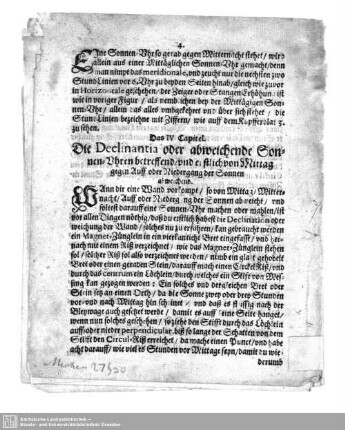 4.
Eine Sonnen-Uhr so gerad gegen Mitternacht stehet / wird
allein aus einer Mittäglichen Sonnen-Uhr gemacht / denn
man nimpt das meridionale, und zeucht nur die nechsten zwo
Stund-Linien vor 6. Uhr zu beyden Seiten hinab / wie zuvor
in Horizontale geschehen / der Zeiger oder Stangen Erhöhung ist
wie in voriger Figur / als nemblichen bey der Mittägigen Son-
nen-Uhr / allein das alles umbgekehrt und über sich stehet / die
Stund-Linien bezeichne mit Ziffern / wie auff dem Kupfferblat 3.
zu sehen.
Das IV. Capitel.
Die Declinantia oder abweichende Son-
nen-Uhren betreffend / und erstlich von Mittag
gegen Auff oder Niedergang der Sonnen
abweichend.
Wann dir eine Wand vorkompt / so von Mittag / Mitter-
nacht / Auff oder Niedergang der Sonnen abweicht / und
soltest darauff eine Sonnen-Uhr machen oder mahlen / ist
vor allen Dingen nöthig / daß du erstlich habest die Declination oder
weichung der Wand / solches nu zu erfahren / kan gebraucht werden
ein Magnet-Zünglein in ein viereckicht Bret eingefasst / und her-
nach mit einem Riß verzeichnet / wie das Magnet-Zünglein stehen
sol / solcher Riß sol also verzeichnet werden / nimb ein glat gehobelt
Bret oder einen geraden Stein / darauff mach einen Circkel Riß / und
durch das centrum ein Löchlein / durch welches ein Stifft von Mes-
sing kan gezogen werden: Ein solches und dergleichen Bret oder
Stein setz an einen Orth / da die Sonne zwey oder drey Stunden
vor und nach Mittag hin scheinet / und daß es fleissig nach der
Bleywage auch gesetzet werde / damit es auff keine Seite hanget /
wenn nun solches geschehen / so ziehe den Stifft durch das Löchlein
auff oder nieder perpendicular, biß so lange der Schatten von dem
Stifft den Circul-Riß erreichet / da mache einen Punct / und habe
acht darauff / wie viel es Stunden vor Mittage seyn / damit du wie-
derumb
Sächsische Landesbibliothek –
Staats- und Universitätsbibliothek Dresden